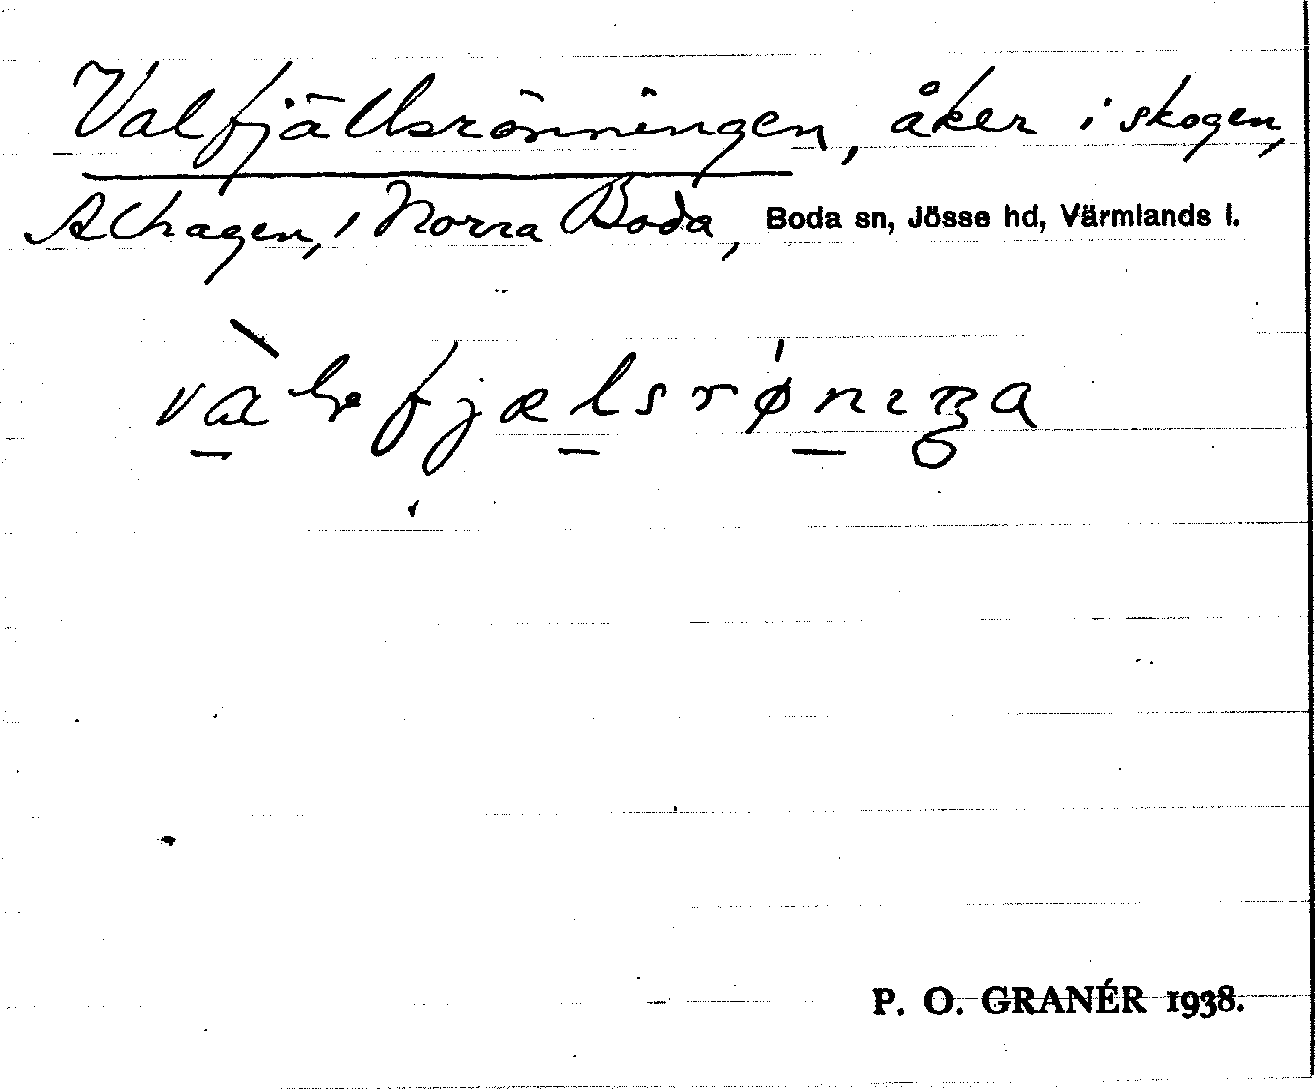 Valfjällsrönningen, åker i skogen,
Alhagen, i Norra Boda, Boda sn, Jösse hd, Värmlands l.
P. O. GRANÉR 1938.